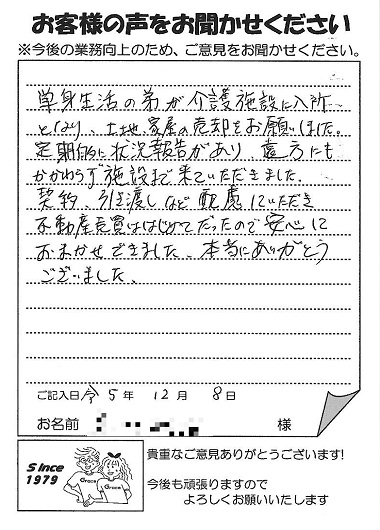 お客様の声をお聞かせください
※今後の業務向上のため、ご意見をお聞かせください。
単身生活の弟が介護施設に入所
となり、土地家屋の売却をお願いしました。
定期的に状況報告があり 遠方にも
かかわらず施設まで来ていただきました.
契約、引き渡しなど 配慮していただき
不動産売買ははじめてだったので 安心して
おまかせできました、本当にありがとう
ございました、
ご記入日 令 5 年 12 月 8 日
お名前 様
Since
1979
Grace
Grace
貴重なご意見ありがとうございます!
今後も頑張りますので
よろしくお願いいたします